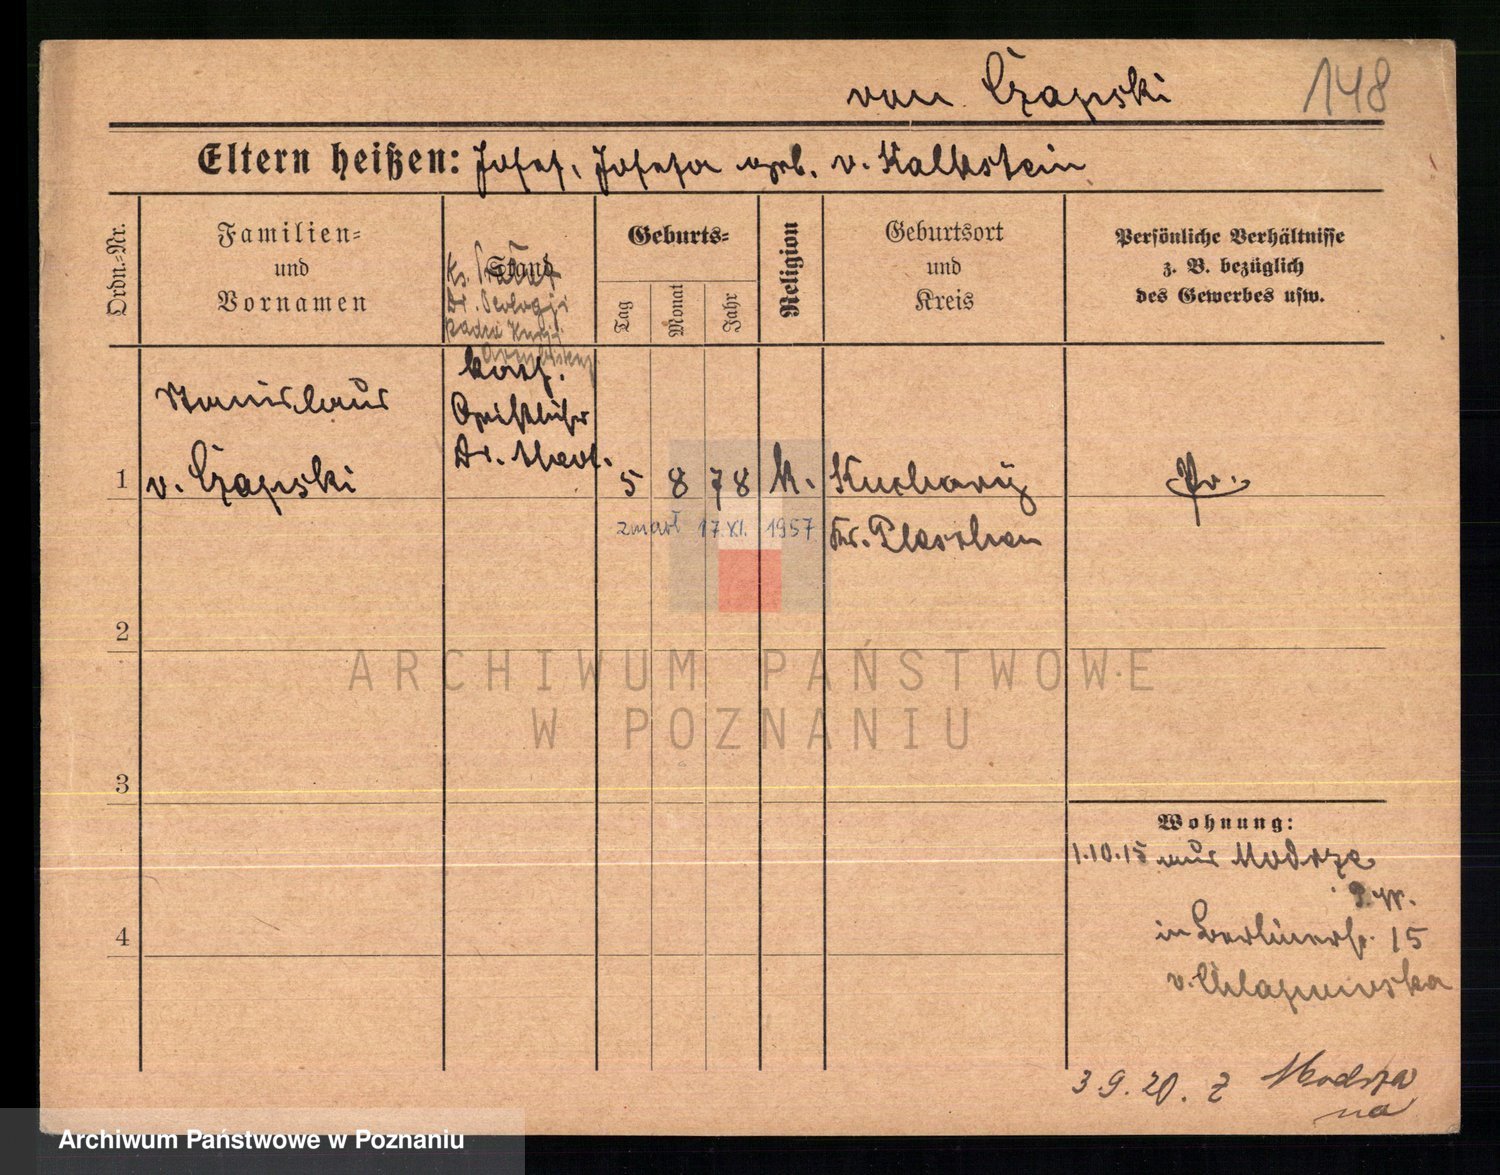 von Czapski 148
Eltern heißen: Josef, Josefa geb. v. Kalkstein
Ordn.-Nr.
Familien-
und
Vornamen
Stand
Ks. Prałat
Dr. Teologji
Radca Kurji
Geburts-
Tag
Monat
Jahr
Religion
Geburtsort
und
Kreis
Persönliche Verhältnisse
z. B. bezüglich
des Gewerbes usw.
Stanislaus
v. Czapski
kath.
Geistlicher
Dr. theol.
1
5 8 78
K.
Kuchary
Kr. Pleschen
Pr.
zmarł 17.XI. 1957
2
ARCHIWUM PAŃSTWOWE
W POZNANIU
3
Wohnung:
1.10.15 aus Modrze
P.W.
in Berlinerstr. 15
v. Chlapowska
4
3.9.20. z Modrza
na
Archiwum Państwowe w Poznaniu